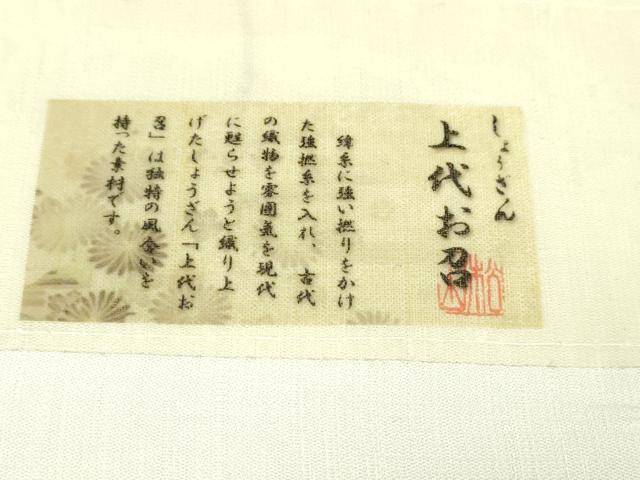 しょうざん
上代お召
松山
緯糸に強い撚りをかけ
た強撚糸を入れ、古代
の織物を雰囲気を現代
に甦らせようと織り上
げたしょうざん「上代お
召」は独特の風合いを
持った素材です。